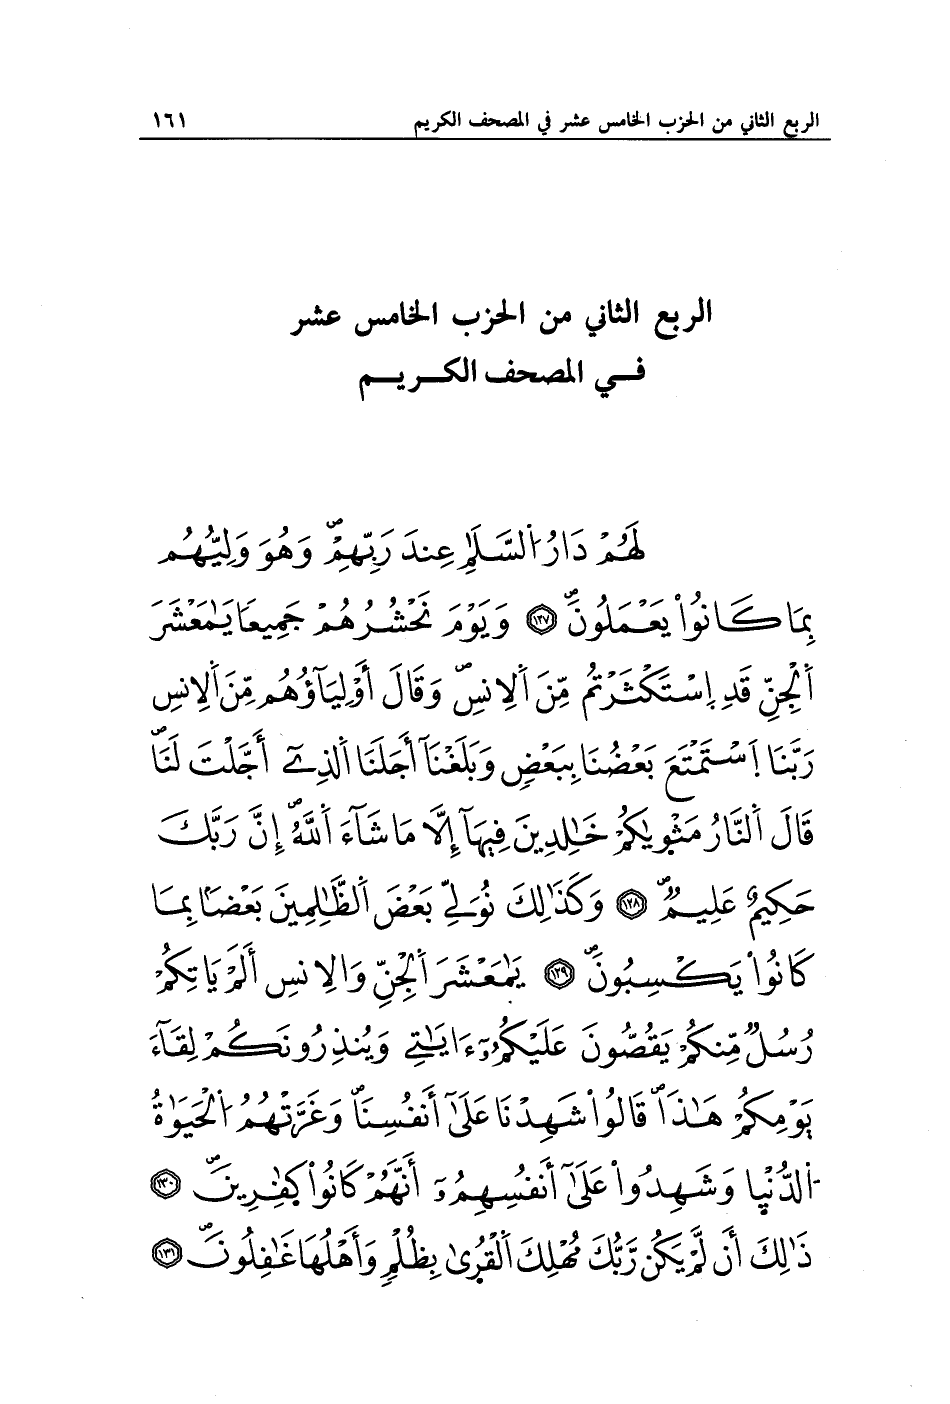 الربع الثاني من الحزب الخامس عشر في المصحف الكريم ١٦١
الربع الثاني من الحزب الخامس عشر
فـي المصحف الكـريـم
لَهُمْ دَارُ اُ۬لسَّلَٰمِ عِندَ رَبِّهِمْۖ وَهُوَ وَلِيُّهُم
بِمَا كَانُواْ يَعْمَلُونَۖ ١٢٧ وَيَوْمَ نَحْشُرُهُمْ جَمِيعاً يَٰمَعْشَرَ
اَ۬لْجِنِّ قَدِ اِ۪سْتَكْثَرْتُم مِّنَ اَ۬لِانسِۖ وَقَالَ أَوْلِيَآؤُهُم مِّنَ اَ۬لِانسِ
رَبَّنَا اَ۪سْتَمْتَعَ بَعْضُنَا بِبَعْضٍ وَبَلَغْنَآ أَجَلَنَا اَ۬لذِےٓ أَجَّلْتَ لَنَاۖ
قَالَ اَ۬لنَّارُ مَثْو۪يٰكُمْ خَٰلِدِينَ فِيهَآ إِلَّا مَا شَآءَ اَ۬للَّهُۖ إِنَّ رَبَّكَ
حَكِيمٌ عَلِيمٌۖ ١٢٨ وَكَذَٰلِكَ نُوَلِّے بَعْضَ اَ۬لظَّٰلِمِينَ بَعْضَاۢ بِمَا
كَانُواْ يَكْسِبُونَۖ ١٢٩ يَٰمَعْشَرَ اَ۬لْجِنِّ وَالِانسِ أَلَمْ يَاتِكُمْ
رُسُلٞ مِّنكُمْ يَقُصُّونَ عَلَيْكُمُۥٓ ءَايَٰتِے وَيُنذِرُونَكُمْ لِقَآءَ
يَوْمِكُمْ هَٰذَاۖ قَالُواْ شَهِدْنَا عَلَىٰٓ أَنفُسِنَاۖ وَغَرَّتْهُمُ اُ۬لْحَيَوٰةُ
اُ۬لدُّنْي۪ا وَشَهِدُواْ عَلَىٰٓ أَنفُسِهِمُۥٓ أَنَّهُمْ كَانُواْ كٰ۪فِرِينَۖ ١٣٠
ذَٰلِكَ أَن لَّمْ يَكُن رَّبُّكَ مُهْلِكَ اَ۬لْقُر۪ىٰ بِظُلْمٍ وَأَهْلُهَا غَٰفِلُونَۖ ١٣١